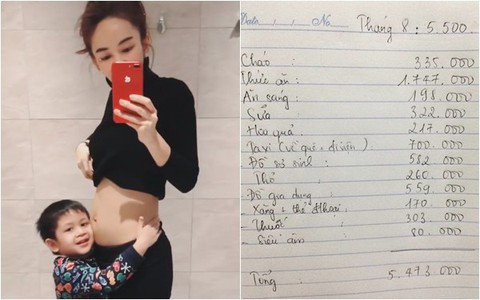 Date No
Tháng 8 : 5.500.
Cháo : 335.000
Thức ăn : 1.747.000
Ăn sáng : 198.000
Sữa : 322.000
Hoa quả : 217.000
Taxi (về quê + đi viện) : 700.000
Đồ sơ sinh : 582.000
Thỏ : 260.000
Đồ gia dụng : 559.000
- Xăng + thẻ đthoại : 170.000
- Thuốc : 303.000
- Siêu âm 80.000
Tổng : 5.473.000